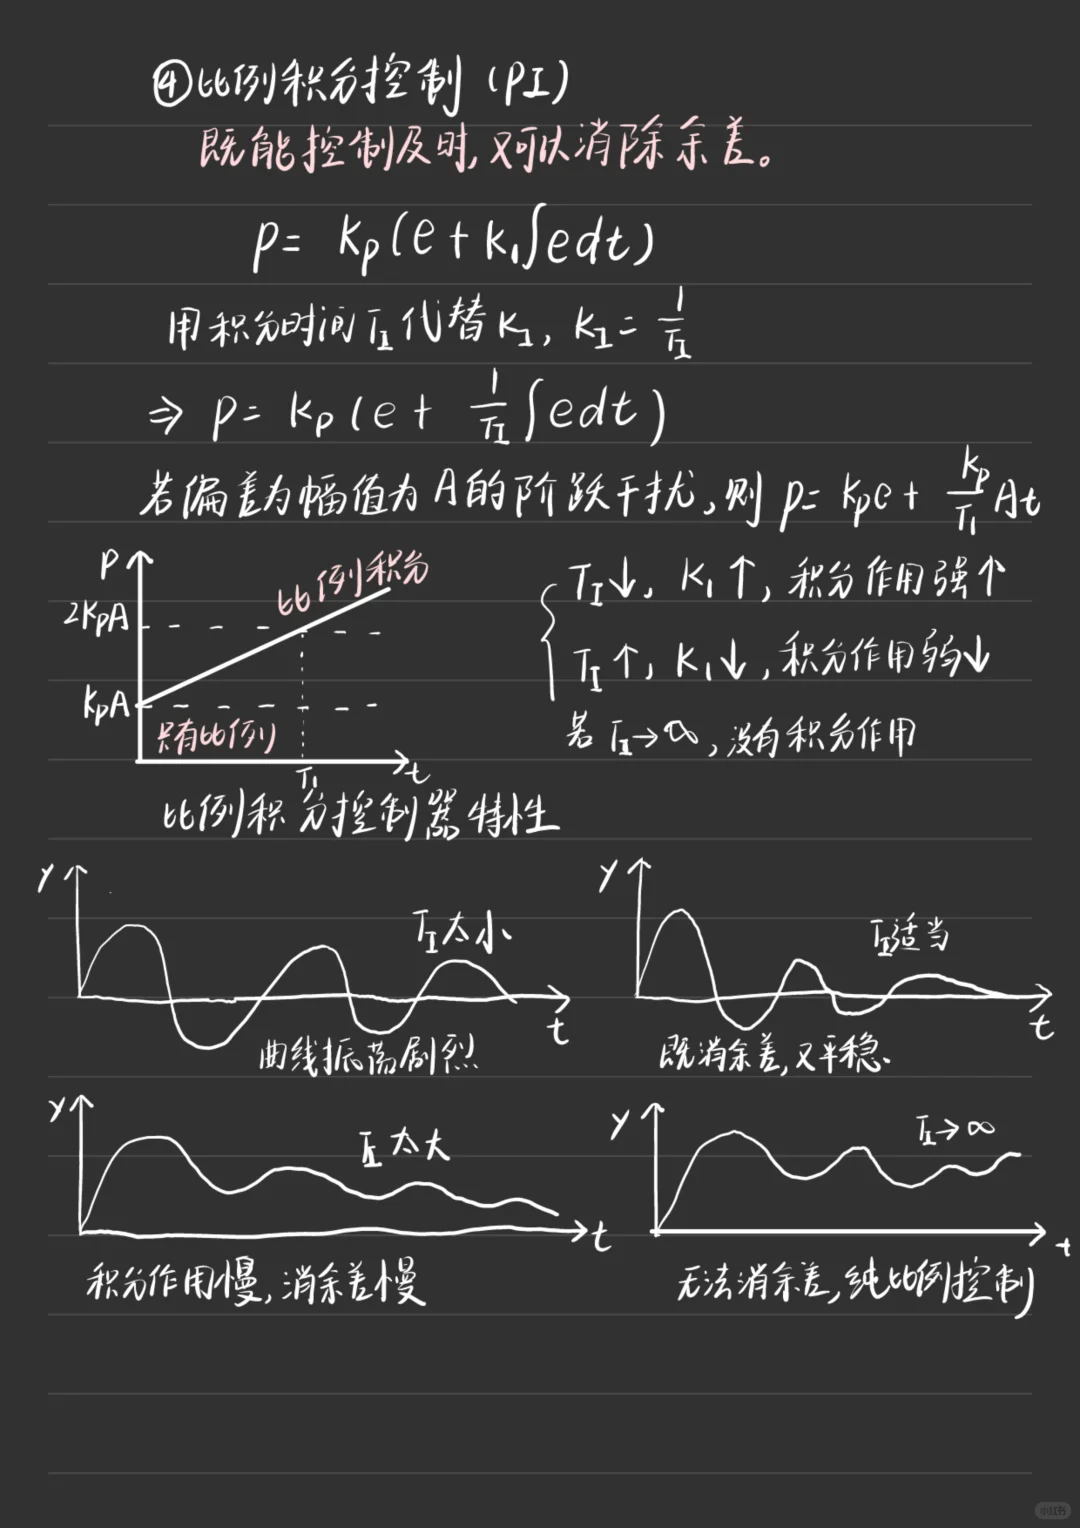 ④比例积分控制(PI)
既能控制及时,又可以消除余差。
p= Kp(e+K₁∫edt)
用积分时间T_I代替K_I, K_I=1/T_I
⇒ p= Kp(e+ 1/T_I ∫edt)
若偏差为幅值为A的阶跃干扰,则 p= Kpe+ Kp/T_I At
P
比例积分
2KpA
KpA
只有比例
T₁
t
比例积分控制器特性
T_I↓, K₁↑, 积分作用强↑
T_I↑, K₁↓, 积分作用弱↓
若 T_I→∞, 没有积分作用
y
T_I太小
t
曲线振荡剧烈
y
T_I适当
t
既消余差,又平稳.
y
T_I太大
t
积分作用慢,消余差慢
y
T_I→∞
t
无法消余差,纯比例控制
小红书